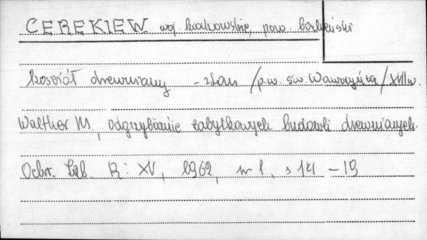 CEREKIEW woj. krakowskie, pow. bocheński
kościół drewniany - /p.w. św. Wawrzyńca/ XVII w.
Walther M., odgrzybianie zabytkowych budowli drewnianych.
Ochr. Zab. R: XV, 1962, nr 1, s 14 - 19